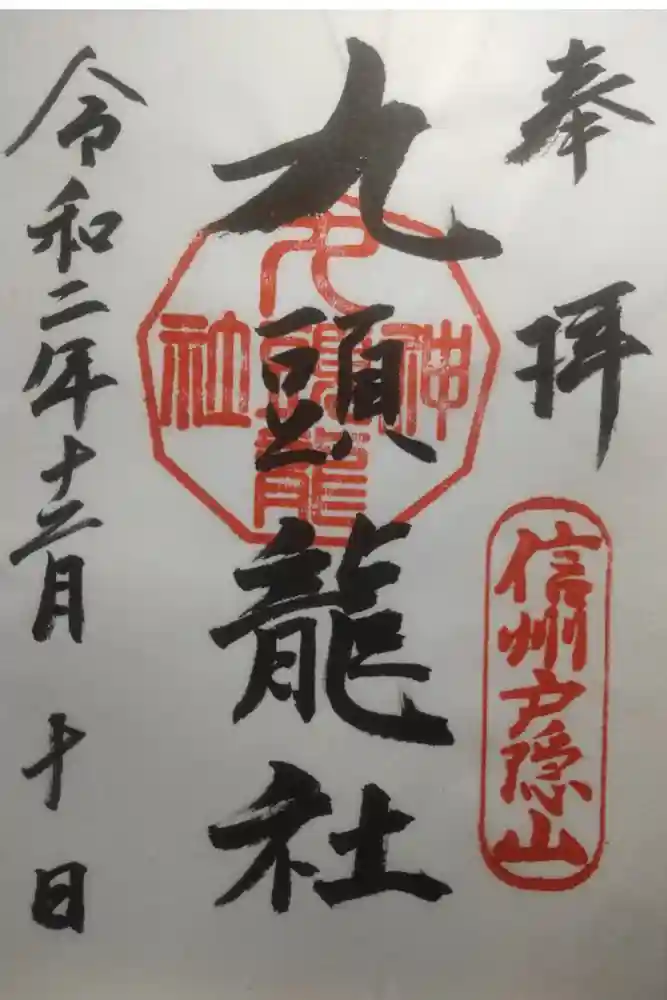 奉拝
信州戸隠山
九頭龍社
九頭龍
神
社
令和二年十二月十日